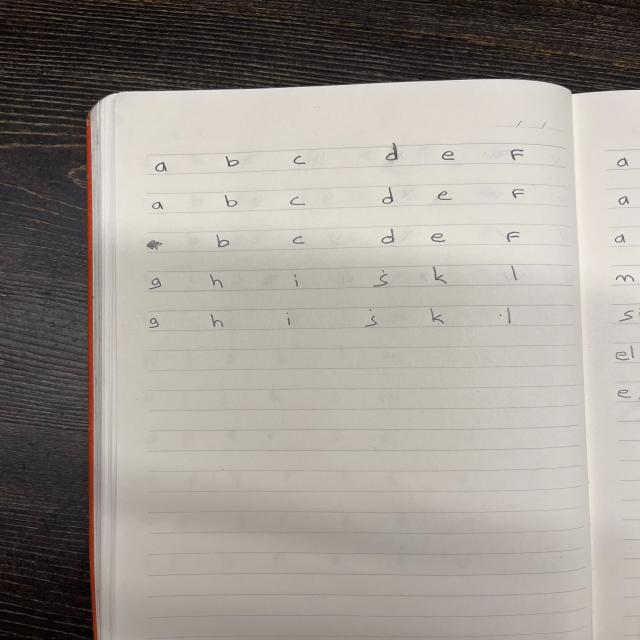 a b c d e F
a b c d e F
b c d e F
g h i j k l
g h i j k l
a
a
a
m
el
e